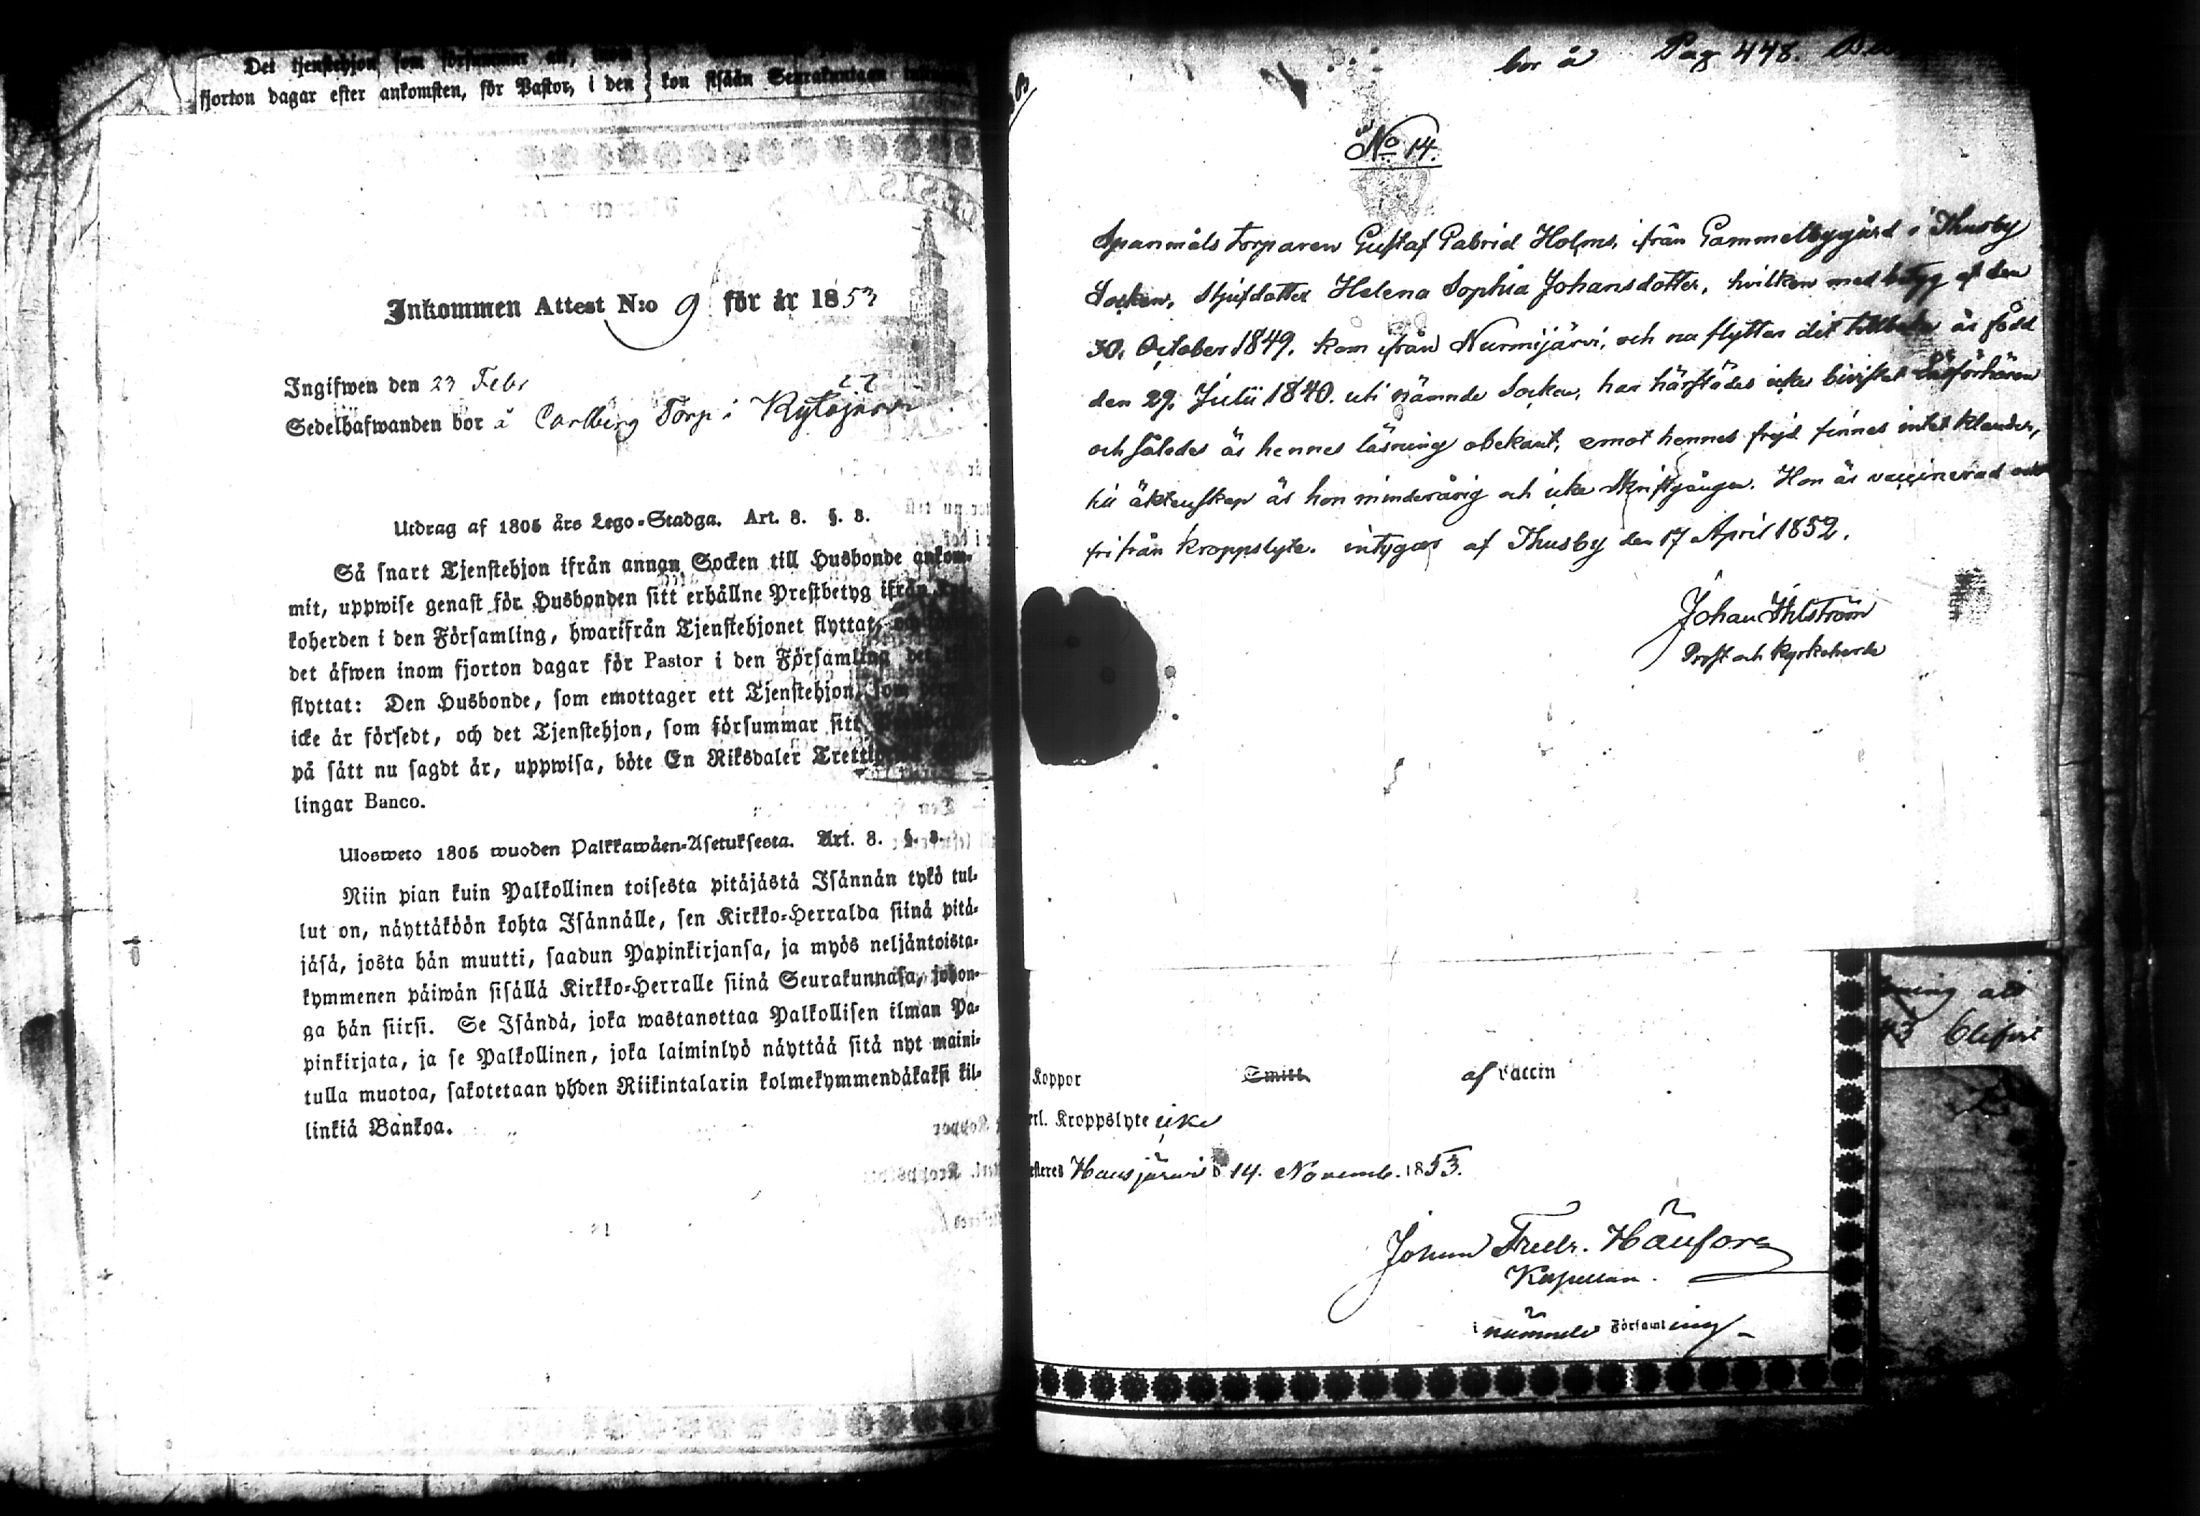 Det tjenstehjon som försummar det, inom
fjorton dagar efter ankomsten, för Pastor, i den
kon sisään Seurakuntaan
Inkommen Attest N:o 9 för år 1853
Ingifwen den 23 Febr
Sedelhafwanden bor å Carlberg Torp i Kytäjärvi
Utdrag af 1805 års Lego-Stadga. Art. 8. §. 8.
Så snart Tjenstehjon ifrån annan Socken till Husbonde ankom-
mit, uppwise genast för Husbonden sitt erhållne Prestbetyg ifrån
koherden i den Församling, hwarifrån Tjenstehjonet flyttat,
det äfwen inom fjorton dagar för Pastor i den Församling det
flyttat: Den Husbonde, som emottager ett Tjenstehjon, som
icke är försedt, och det Tjenstehjon, som försummar sitt
på sätt nu sagdt är, uppwisa, böte En Riksdaler
lingar Banco.
Ulosweto 1805 wuoden Palkkawäen-Asetuksesta. Art. 8. §. 8.
Niin pian kuin Palkollinen toisesta pitäjästä Isännän tykö tul-
lut on, näyttäköön kohta Isännälle, sen Kirkko-Herralda siinä pitä-
jäsä, josta hän muutti, saadun Papinkirjansa, ja myös neljäntoista-
kymmenen päiwän sisällä Kirkko-Herralle siinä Seurakunnasa, johon-
ga hän siirsi. Se Isändä, joka wastanottaa Palkollisen ilman Pa-
pinkirjata, ja se Palkollinen, joka laiminlyö näyttää sitä nyt maini-
tulla muotoa, sakotetaan yhden Riikintalarin kolmekymmendäkaksi kil-
linkiä Bankoa.
bor å Pag 448.
No 14.
Spanmåls Torparen Gustaf Gabriel Holms, ifrån Gammelbygård i Thusby
Socken, Stjufdotter Helena Sophia Johansdotter, hvilken med betyg af den
30. October 1849. kom ifrån Nurmijärvi, och nu flyttar dit tillbaka är född
den 29. Julii 1840. uti nämnde Socken, har härstädes icke bivistat Läsförhören
och således är hennes läsning obekant, emot hennes frejd finnes intet klander,
till äktenskap är hon minderårig och icke Skriftgången. Hon är vaccinerad och
fri från kroppslyte. intygar af Thusby den 17 April 1852.
Johan Ihlström
Prost och Kyrkoherde
Koppor Smitt af Vaccin
erl. Kroppslyte icke
esteres Hausjärvi d 14. Novemb. 1853.
Johan Fredr. Häufors
Kapellan.
i nämnde Församling